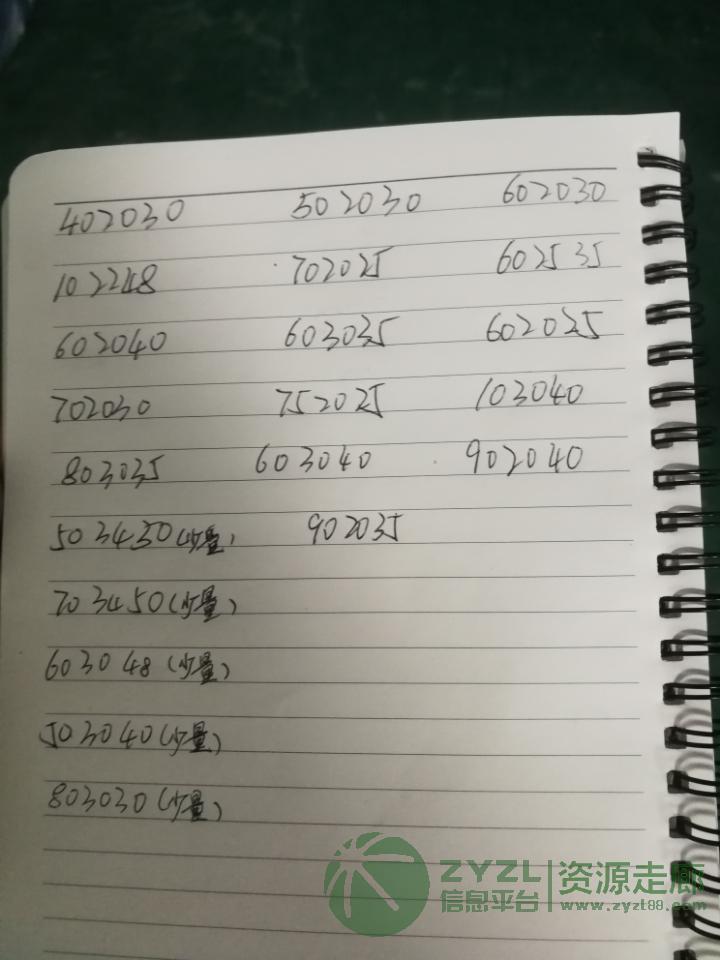 402030 502030 602030
102248 702025 602535
602040 603035 602025
702030 752025 103040
803035 603040 902040
503450(少量) 902035
703450(少量)
603048(少量)
503040(少量)
803030(少量)
ZYZL 资源走廊
信息平台 www.zyzl88.com